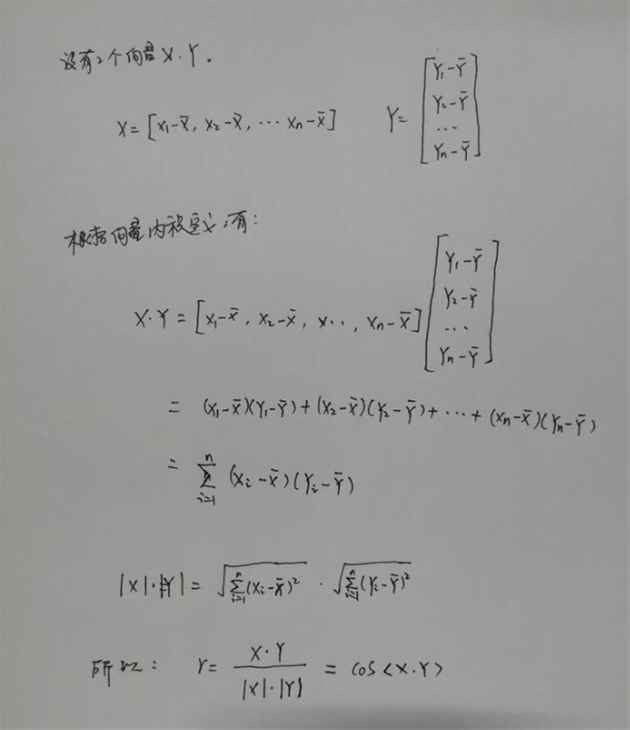 设有2个向量X.Y.
X=[x₁-x̄, x₂-x̄, ⋯ xₙ-x̄] Y=[Y₁-Ȳ Y₂-Ȳ ⋯ Yₙ-Ȳ]
根据向量内积定义,有:
X·Y=[x₁-x̄, x₂-x̄, x⋯, xₙ-x̄][Y₁-Ȳ Y₂-Ȳ ⋯ Yₙ-Ȳ]
=(x₁-x̄)(Y₁-Ȳ)+(x₂-x̄)(Y₂-Ȳ)+⋯+(xₙ-x̄)(Yₙ-Ȳ)
=∑ⁿᵢ₌₁(xᵢ-x̄)(Yᵢ-Ȳ)
|X|·|Y|=√(∑ⁿᵢ₌₁(xᵢ-x̄)²)·√(∑ⁿᵢ₌₁(Yᵢ-Ȳ)²)
所以: r=X·Y/|X|·|Y|=cos<X.Y>